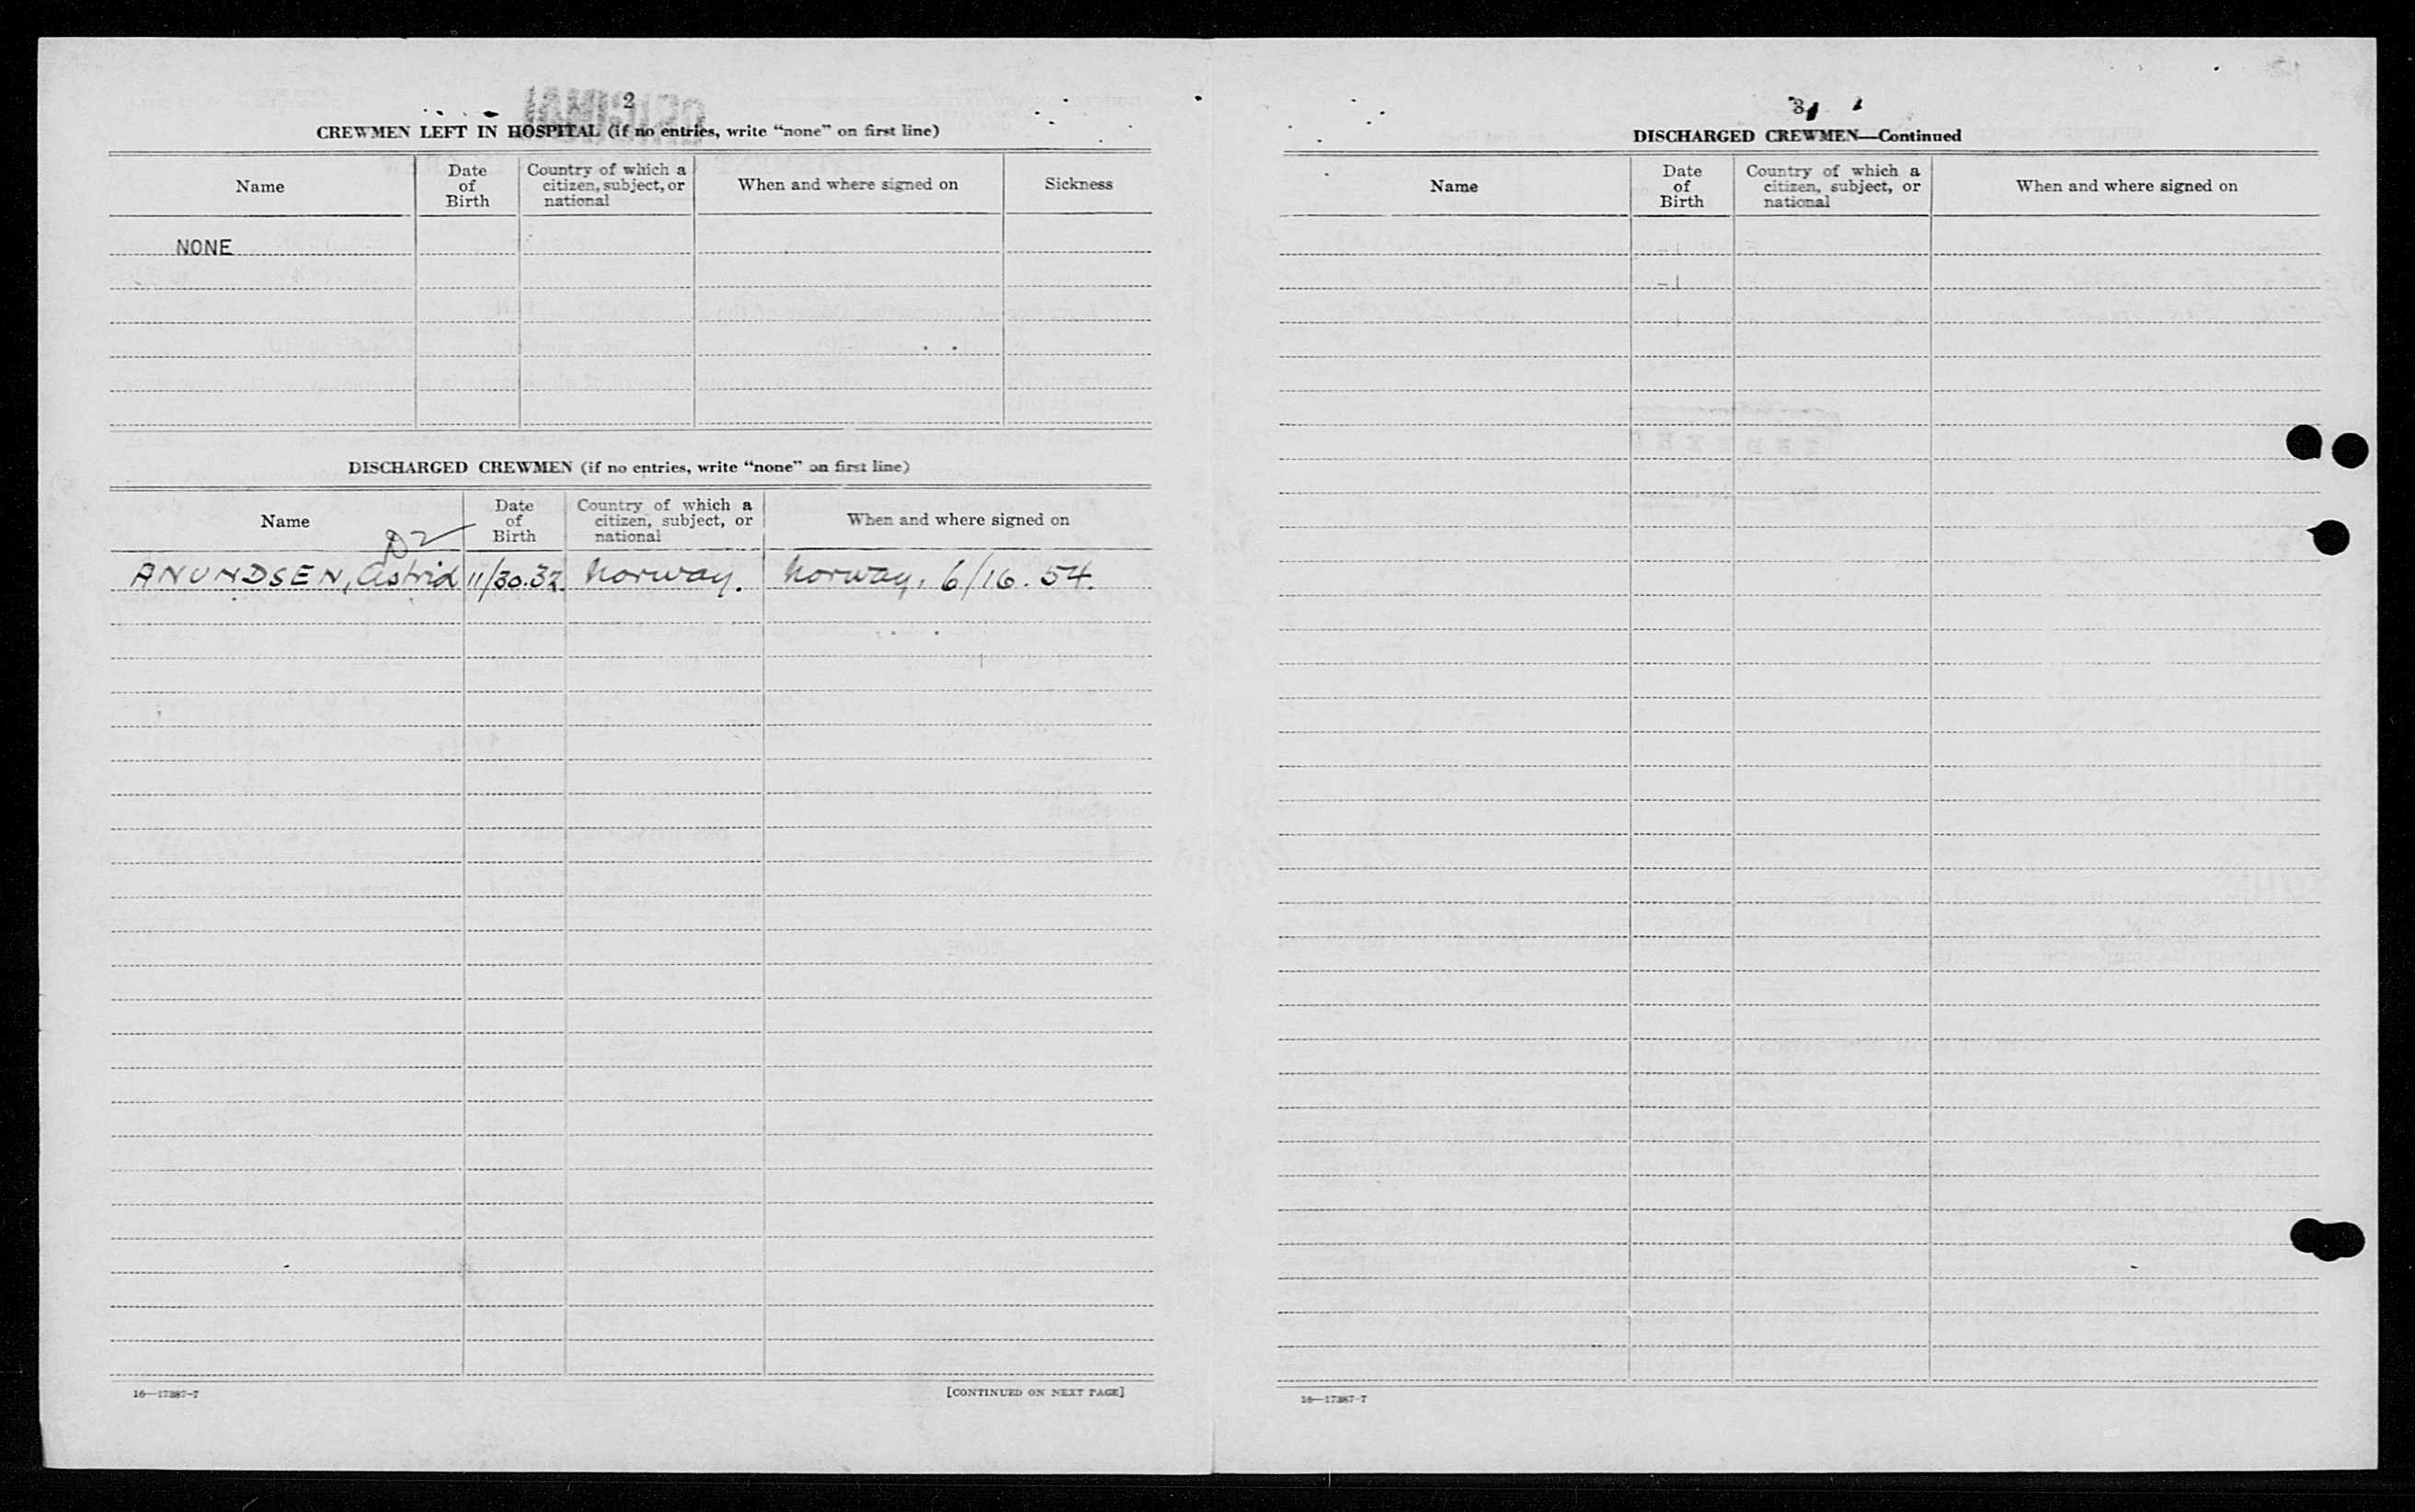 2
ORIGINAL
CREWMEN LEFT IN HOSPITAL (if no entries, write “none” on first line)
Name
Date of Birth
Country of which a citizen, subject, or national
When and where signed on
Sickness
NONE
DISCHARGED CREWMEN (if no entries, write “none” on first line)
Name
Date of Birth
Country of which a citizen, subject, or national
When and where signed on
D2
ANUNDSEN, Astrid 11/30.32. Norway. Norway, 6/16.54.
16—17387-7
[CONTINUED ON NEXT PAGE]
3
DISCHARGED CREWMEN—Continued
Name
Date of Birth
Country of which a citizen, subject, or national
When and where signed on
16—17387-7